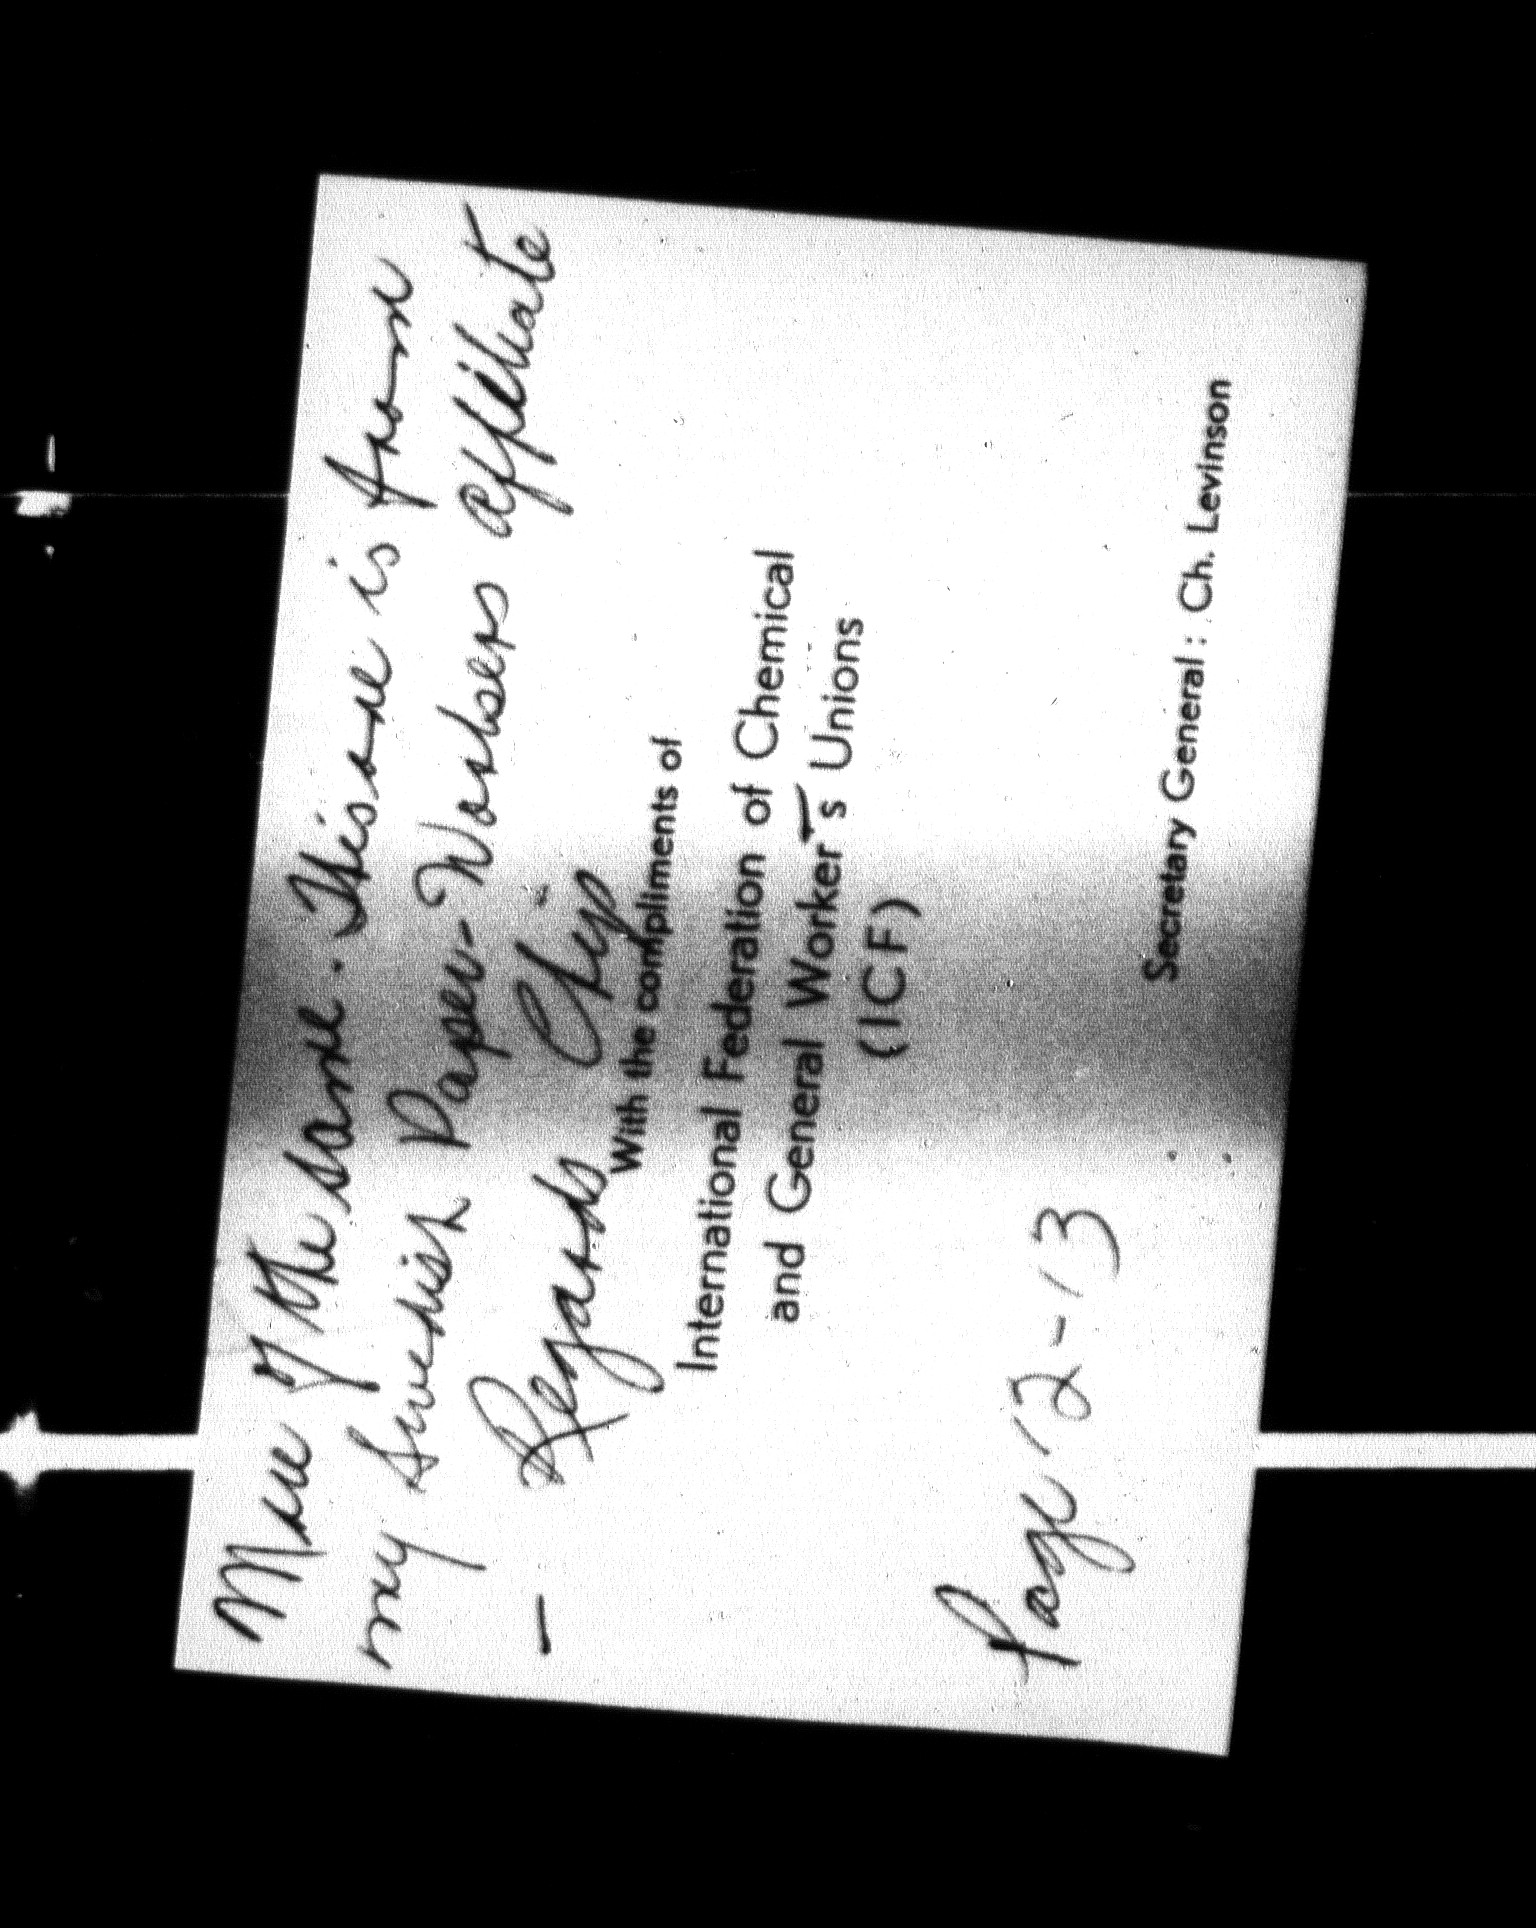 More of the same. This one is from
my Swedish Paper-Workers affiliate
— Regards Chip
With the compliments of
International Federation of Chemical
and General Worker's Unions
(ICF)
Page 12-13
Secretary General : Ch. Levinson